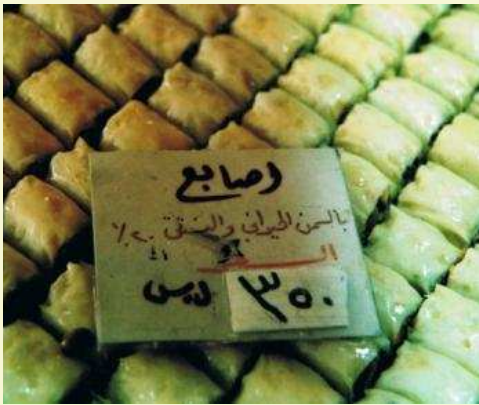 اصابع
بالسمن الحيواني والفستقي ٢٠٪
٣٥٠ ل.س